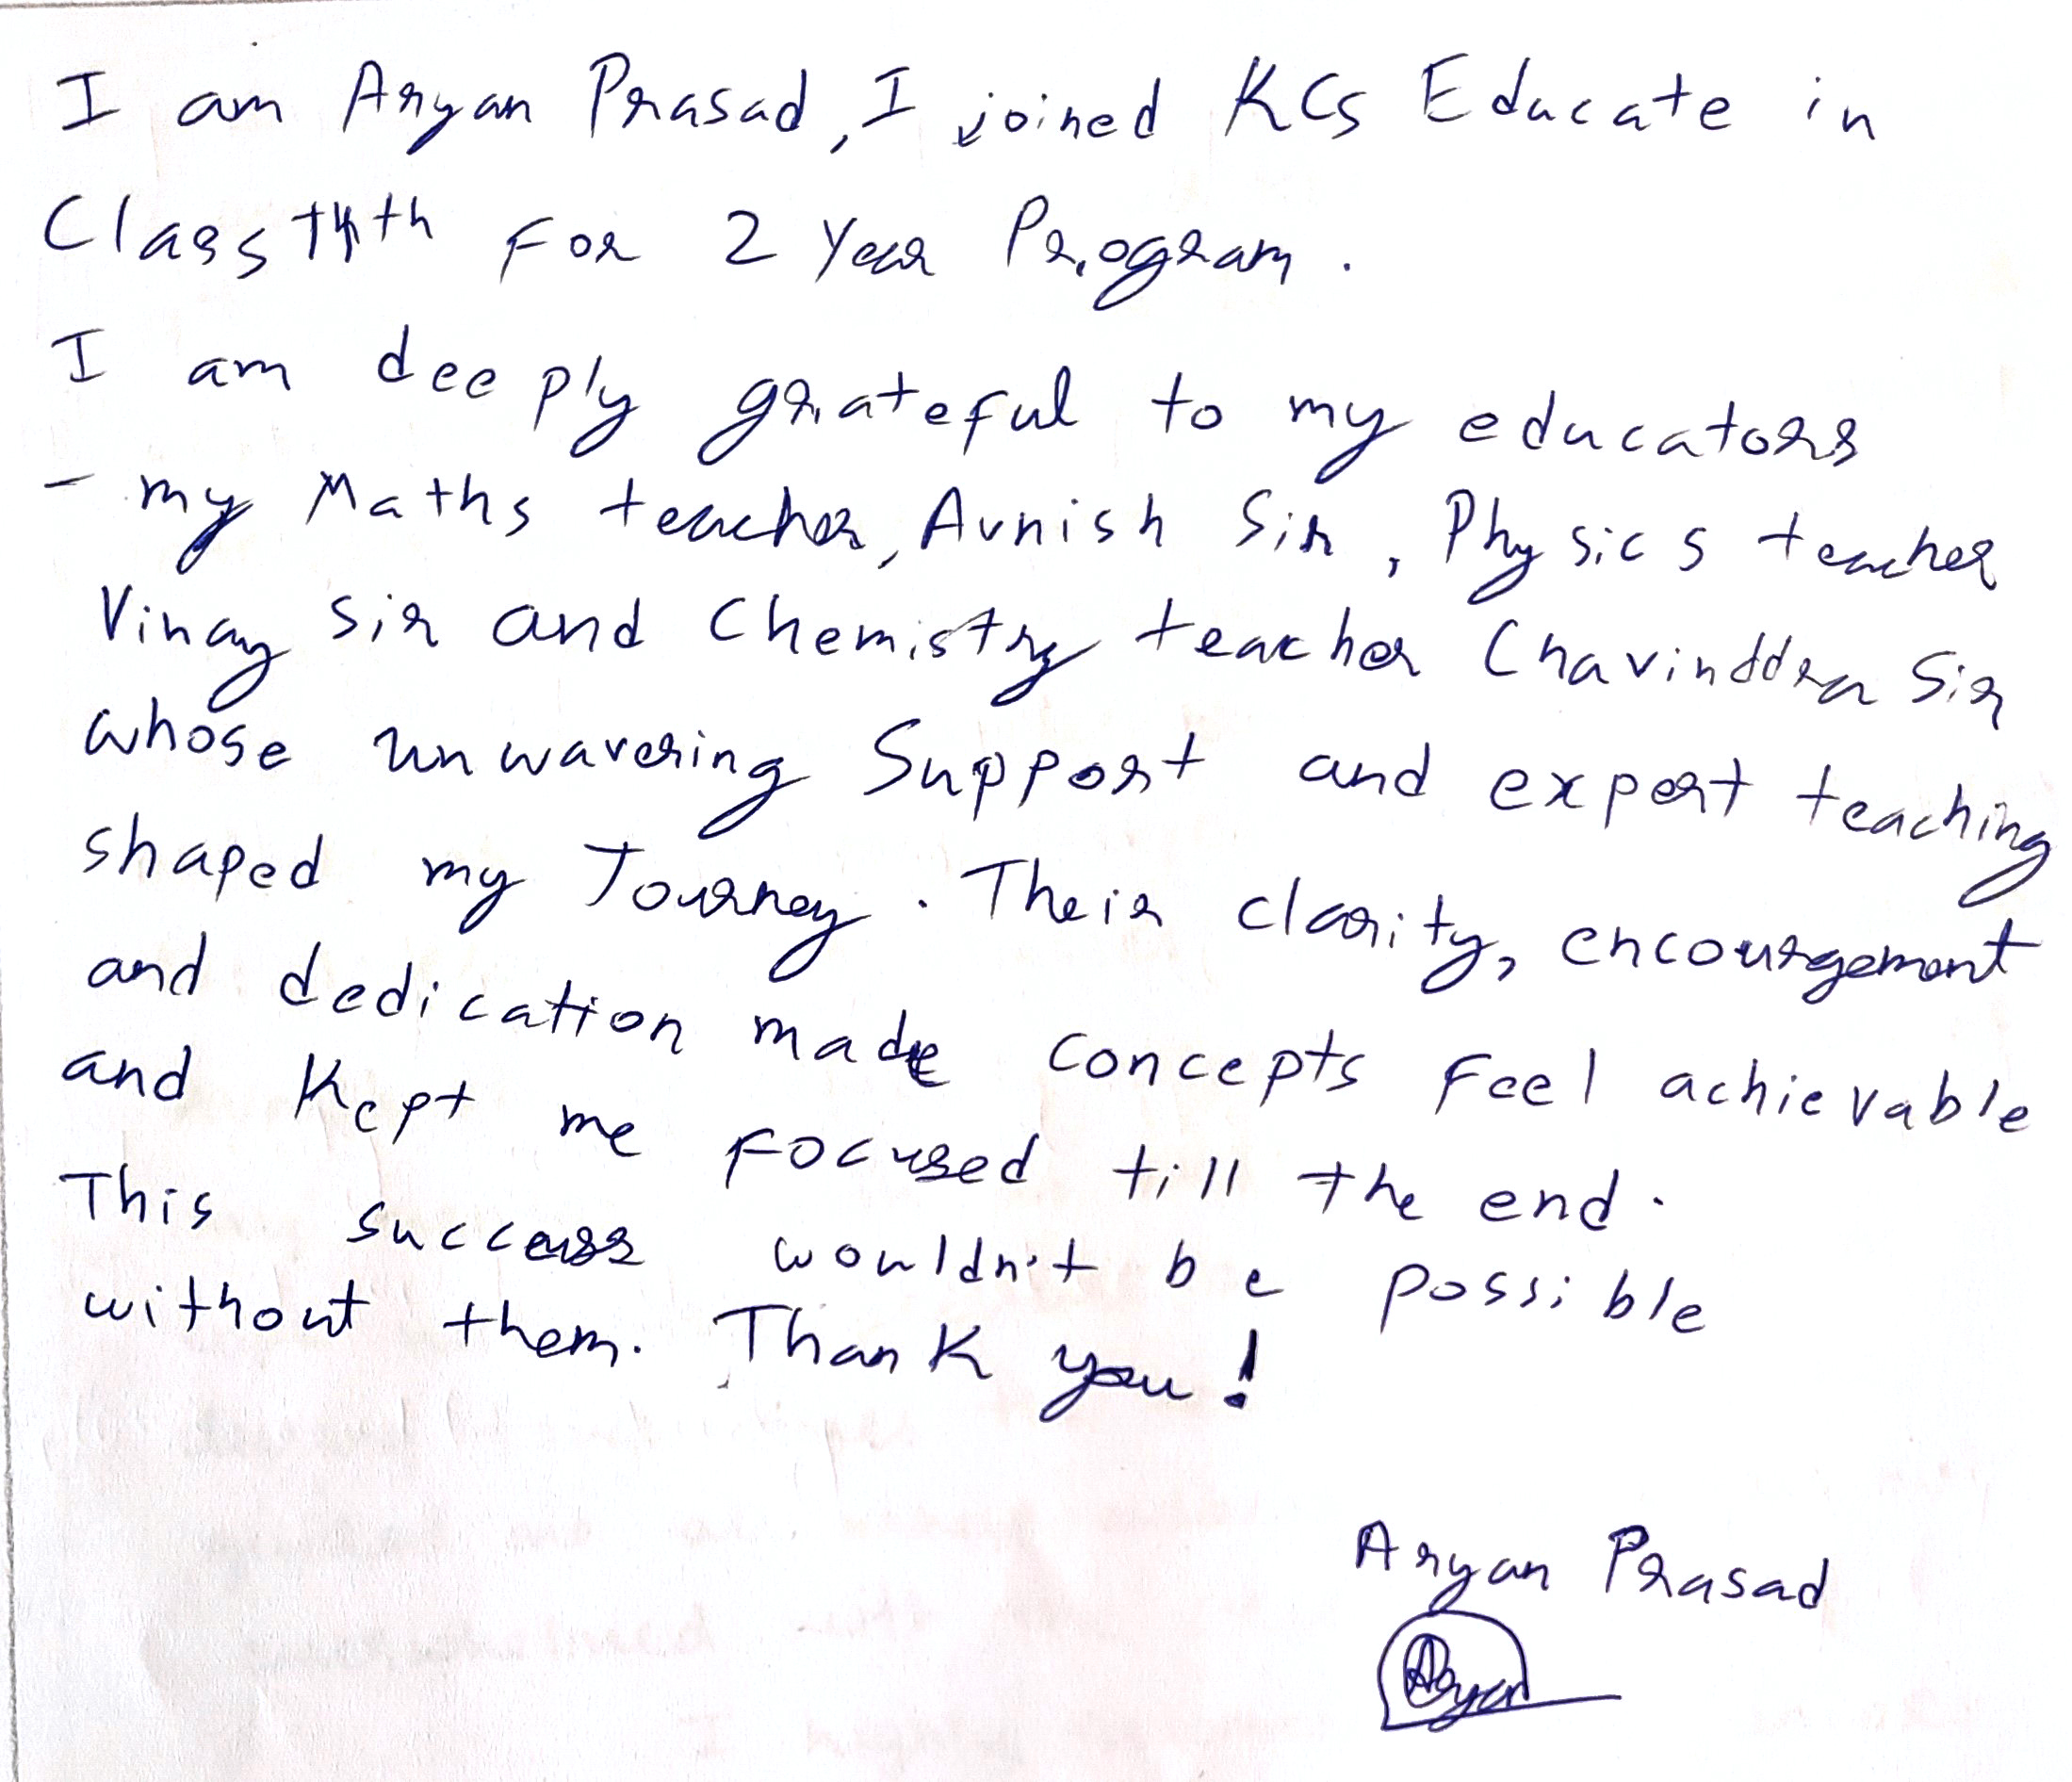 I am Aryan Prasad, I joined KCS Educate in
Class 11th for 2 Year Program.
I am deeply grateful to my educators
- my Maths teacher, Avnish Sir, Physics teacher
Vinay Sir and Chemistry teacher Chavinddra Sir
whose unwavering Support and expert teaching
shaped my Journey. Their clarity, encourgement
and dedication made concepts feel achievable
and Kept me focused till the end.
This success wouldn't be possible
without them. Thank you!
Aryan Prasad
Aryan